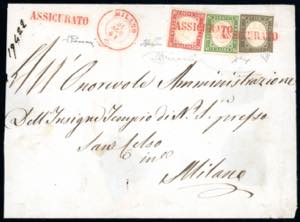 ASSICURATO
MILANO
ASSICURATO
ASSICURATO
All'Onorevole Amministrazione
Dell'Insigne Tempio di N. S. presso
San Celso
in
Milano